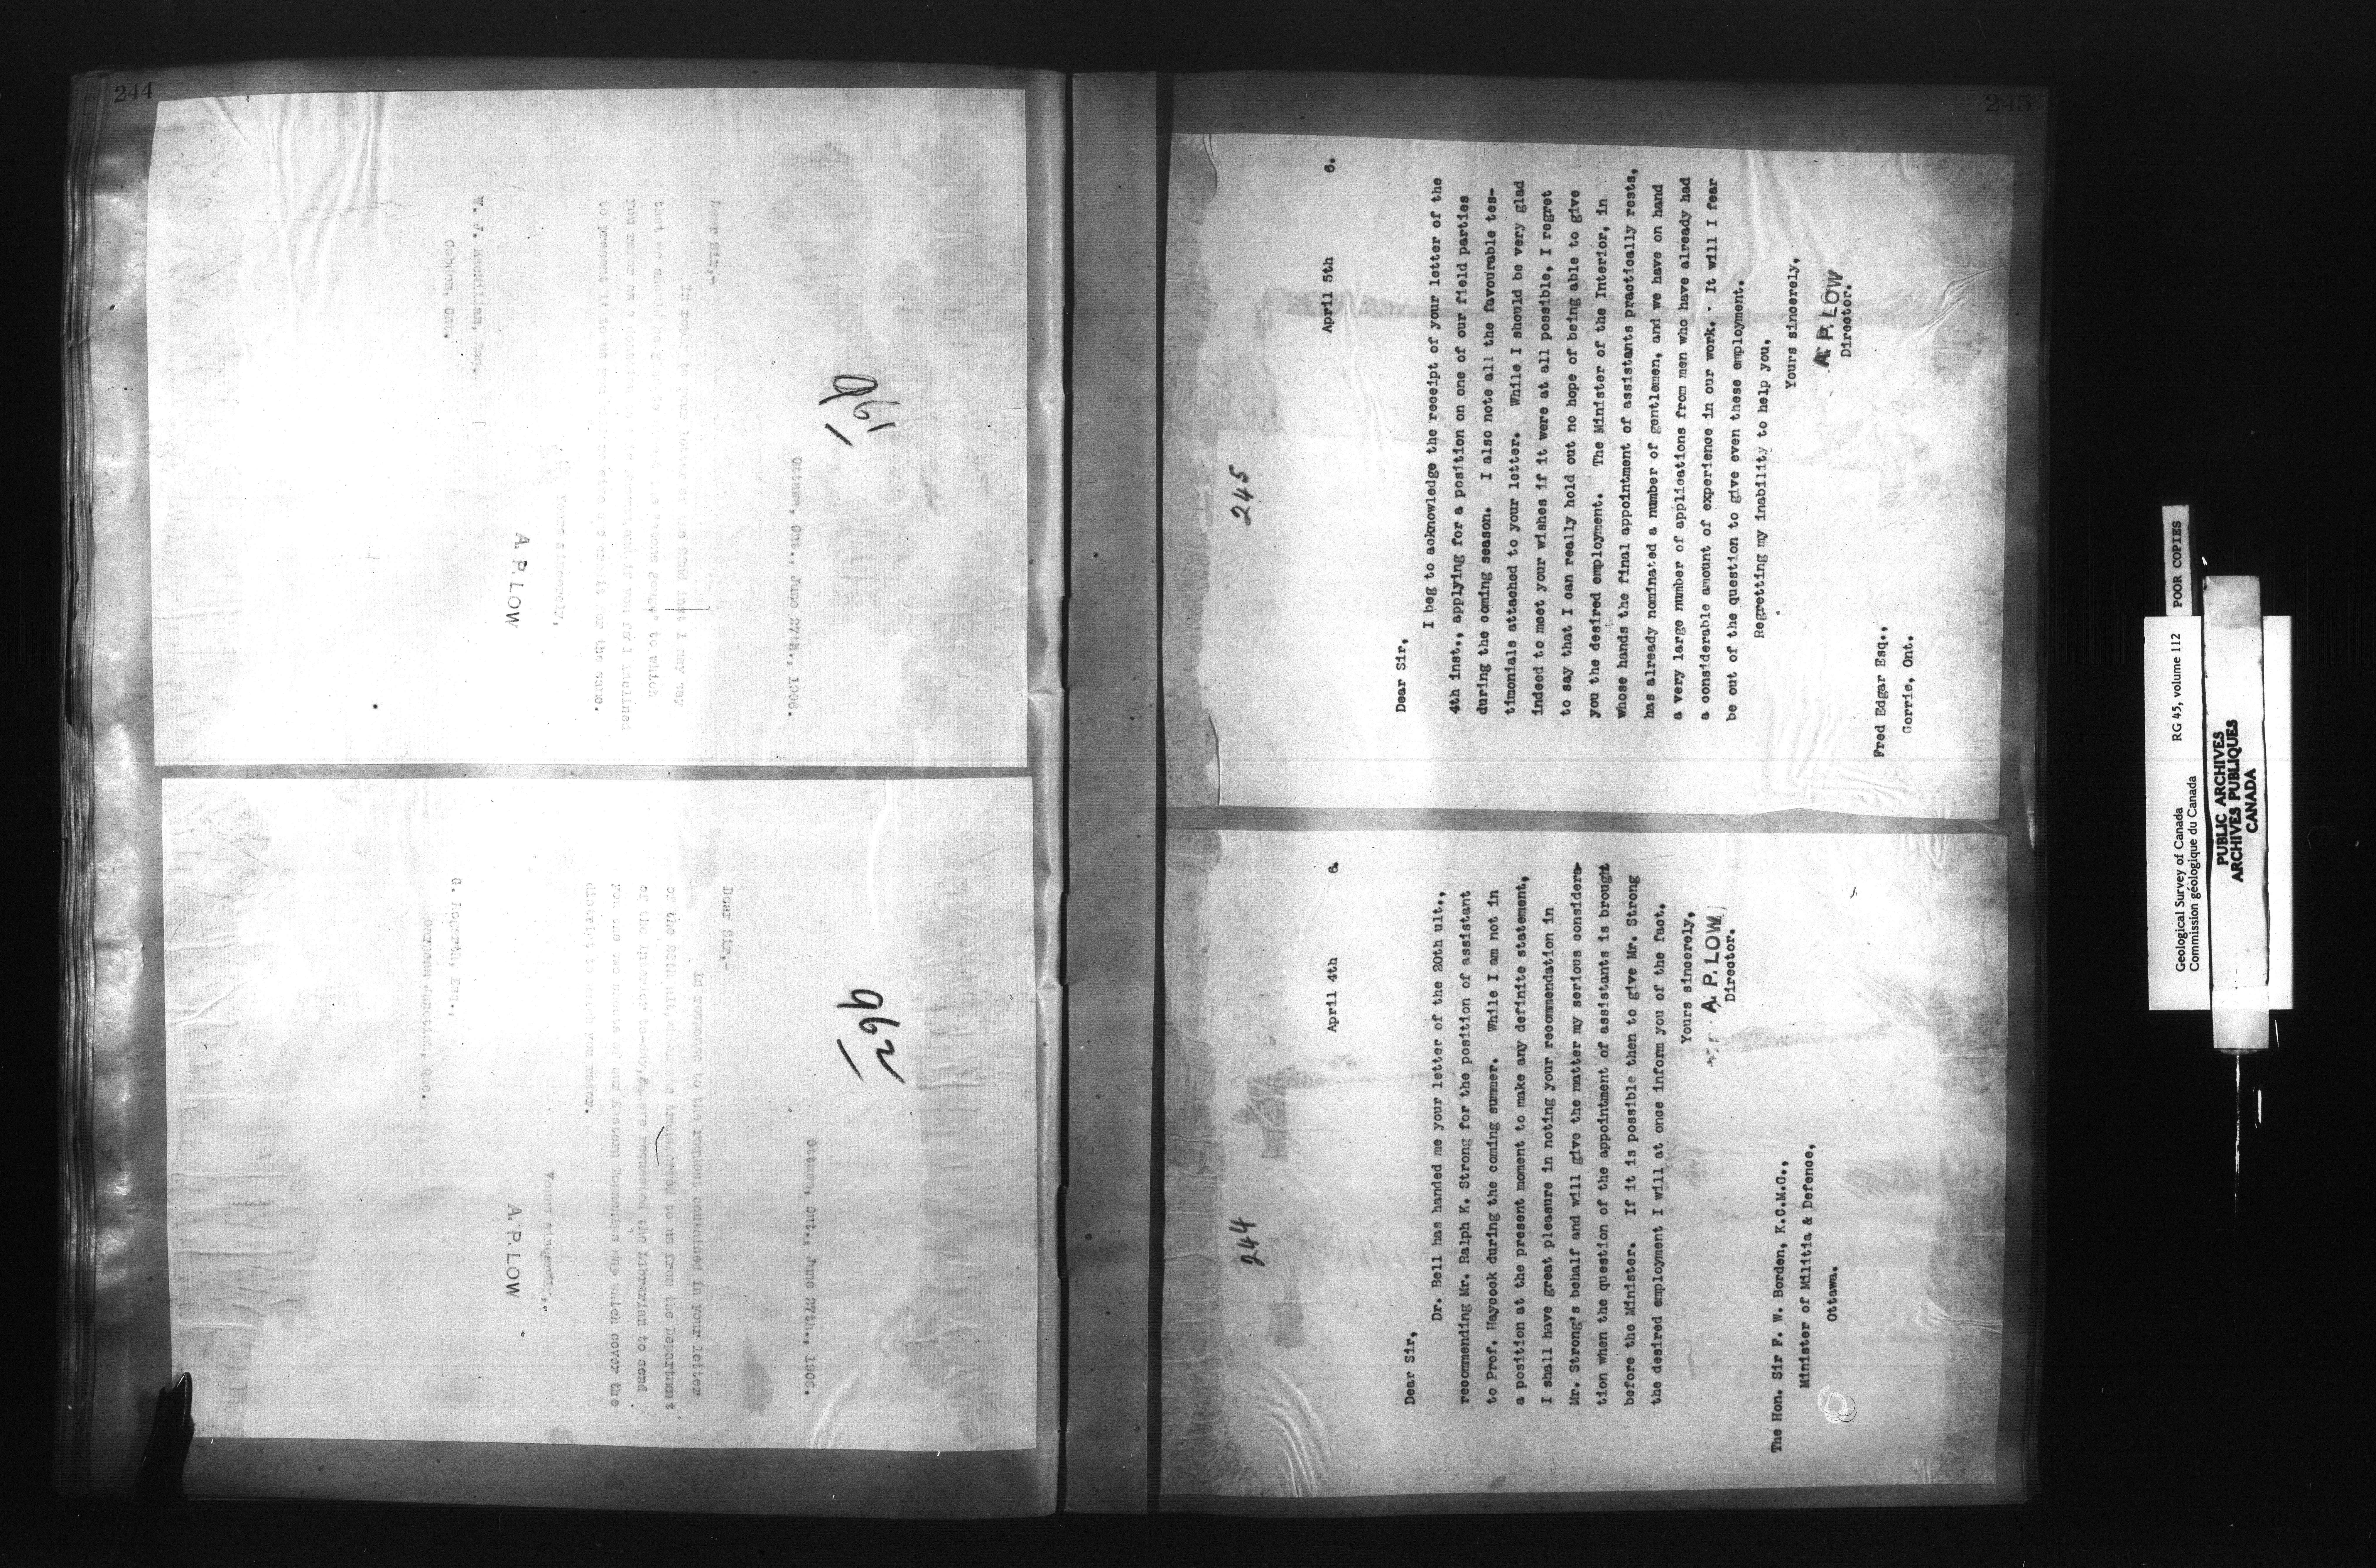 244
191
Ottawa, Ont., June 27th., 1906.
Dear Sir,-
In reply to your letter of the 22nd inst I may say
that we should be glad to
to which
you refer as a
to present it to us
for the same.
Yours sincerely,
A. P. LOW
W. J. MacMillan, Esq.,
Cobden, Ont.
192
Ottawa, Ont., June 27th., 1906.
Dear Sir,-
In response to the request contained in your letter
of the 25th ult, which was transferred to us from the Department
of the Interior to-day, I have requested the Librarian to send
you the two of our Eastern Townships map which cover the
district to which you refer.
Yours sincerely,
A. P. LOW
Junction, Que.
245
244
April 4th 6.
Dear Sir,
Dr. Bell has handed me your letter of the 20th ult.,
recommending Mr. Ralph K. Strong for the position of assistant
to Prof. Haycock during the coming summer. While I am not in
a position at the present moment to make any definite statement,
I shall have great pleasure in noting your recommendation in
Mr. Strong's behalf and will give the matter my serious considera-
tion when the question of the appointment of assistants is brought
before the Minister. If it is possible then to give Mr. Strong
the desired employment I will at once inform you of the fact.
Yours sincerely,
A. P. LOW
Director.
The Hon. Sir F. W. Borden, K.C.M.G.,
Minister of Militia & Defence,
Ottawa.
245
April 5th 6.
Dear Sir,
I beg to acknowledge the receipt of your letter of the
4th inst., applying for a position on one of our field parties
during the coming season. I also note all the favourable tes-
timonials attached to your letter. While I should be very glad
indeed to meet your wishes if it were at all possible, I regret
to say that I can really hold out no hope of being able to give
you the desired employment. The Minister of the Interior, in
whose hands the final appointment of assistants practically rests,
has already nominated a number of gentlemen, and we have on hand
a very large number of applications from men who have already had
a considerable amount of experience in our work. It will I fear
be out of the question to give even these employment.
Regretting my inability to help you,
Yours sincerely,
A. P. LOW
Director.
Fred Edgar Esq.,
Gorrie, Ont.
Geological Survey of Canada RG 45, volume 112 POOR COPIES
Commission géologique du Canada
PUBLIC ARCHIVES
ARCHIVES PUBLIQUES
CANADA